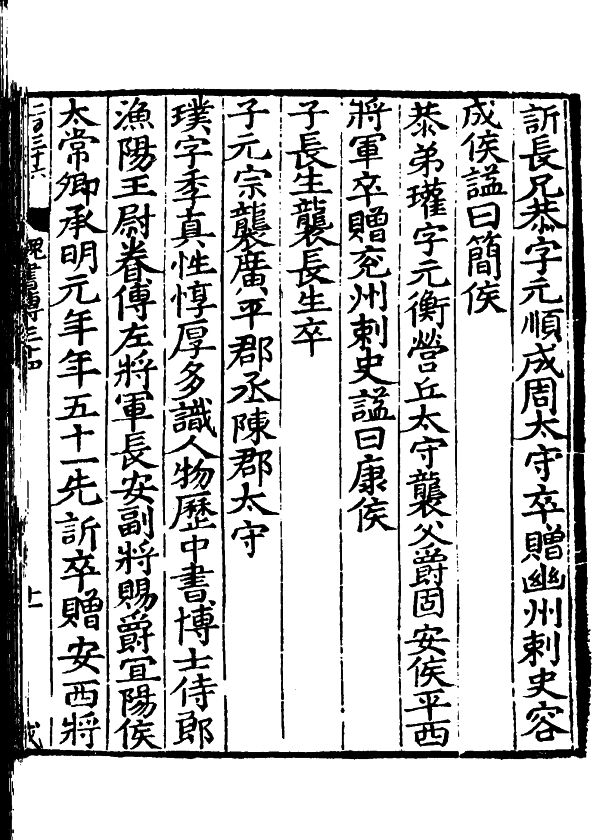 訢長兄恭字元順成周太守卒贈幽州刺史容
成侯諡曰簡侯
恭弟瓘字元衡營丘太守襲父爵固安侯平西
將軍卒贈兖州刺史諡曰康侯
子長生襲長生卒
子元宗襲廣平郡丞陳郡太守
璞字季真性惇厚多識人物歷中書博士侍郎
漁陽王尉眷傅左將軍長安副將賜爵宜陽侯
太常卿承明元年年五十一先訢卒贈安西將
二百三十六
魏書傳三十四
十一